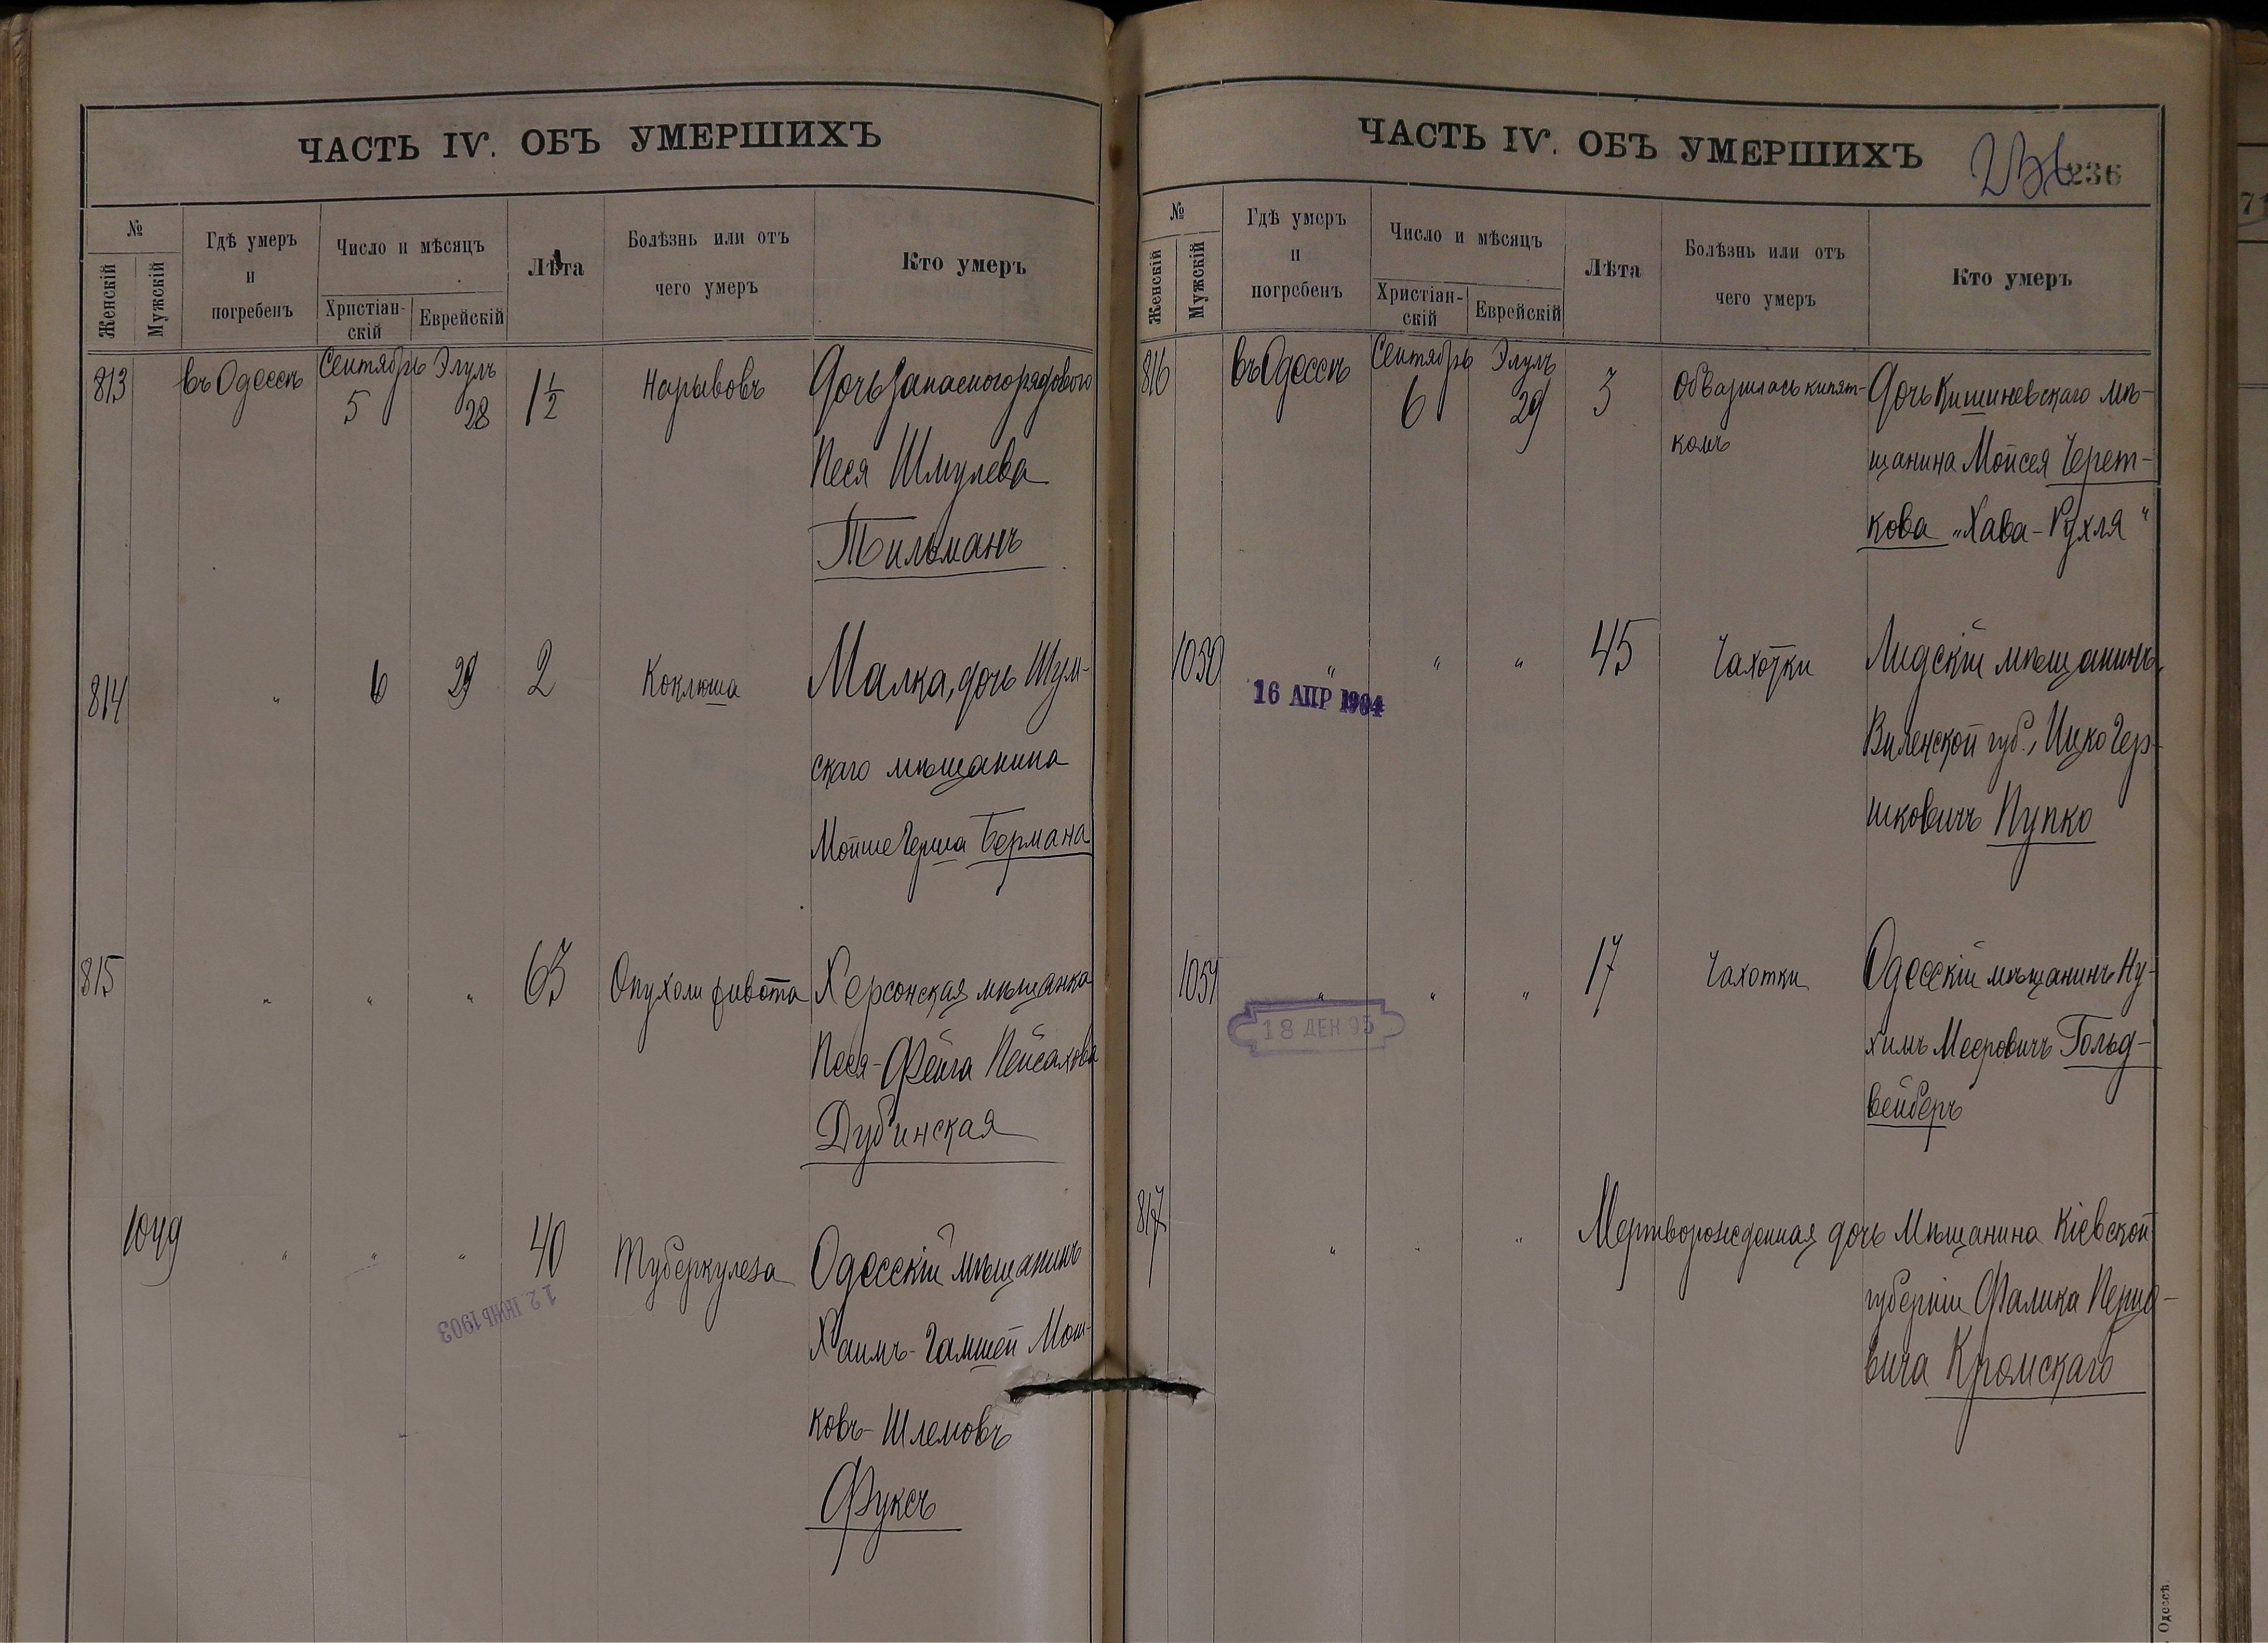 ЧАСТЬ IV. ОБЪ УМЕРШИХЪ
№
Женскій
Мужскій
Гдѣ умеръ
и
погребенъ
Число и мѣсяцъ
Христіан-
скій
Еврейскій
Лѣта
Болѣзнь или отъ
чего умеръ
Кто умеръ
813 въ Одессѣ Сентябрь 5 Элулъ 28 1½ Нарывовъ Дочь запасного рядового
Песя Шмулева
Тильманъ
814 " 6 29 2 Коклюша Малка, дочь Шум-
скаго мѣщанина
Мойше Герша Бермана
815 " " " 63 Опухоли живота Херсонская мѣщанка
Песя-Фейга Пейсахова
Дубинская
1049 " " " 40 Туберкулеза Одесскій мѣщанинъ
12 ІЮНЬ 1903
Хаимъ- Мош-
ковъ-Шлемовъ
Фуксъ
ЧАСТЬ IV. ОБЪ УМЕРШИХЪ
236 236
№
Женскій
Мужскій
Гдѣ умеръ
и
погребенъ
Число и мѣсяцъ
Христіан-
скій
Еврейскій
Лѣта
Болѣзнь или отъ
чего умеръ
Кто умеръ
816 въ Одессѣ Сентябрь 6 Элулъ 29 3 Обварилась кипят-
комъ
Дочь Кишиневскаго мѣ-
щанина Мойсея Черет-
кова „Хава-Рухля"
1050 " " " 45 Чахотки Лидскій мѣщанинъ,
16 АПР 1904
Виленской губ., Ицко Гер-
шковичъ Пупко
1051 " " " 17 Чахотки Одесскій мѣщанинъ Ну-
18 ДЕК 95
химъ Мееровичъ Гольд-
вейберъ
817 " " " Мертворожденная дочь Мѣщанина Кіевской
губерніи Фалика
вича Кромскаго
Одессѣ